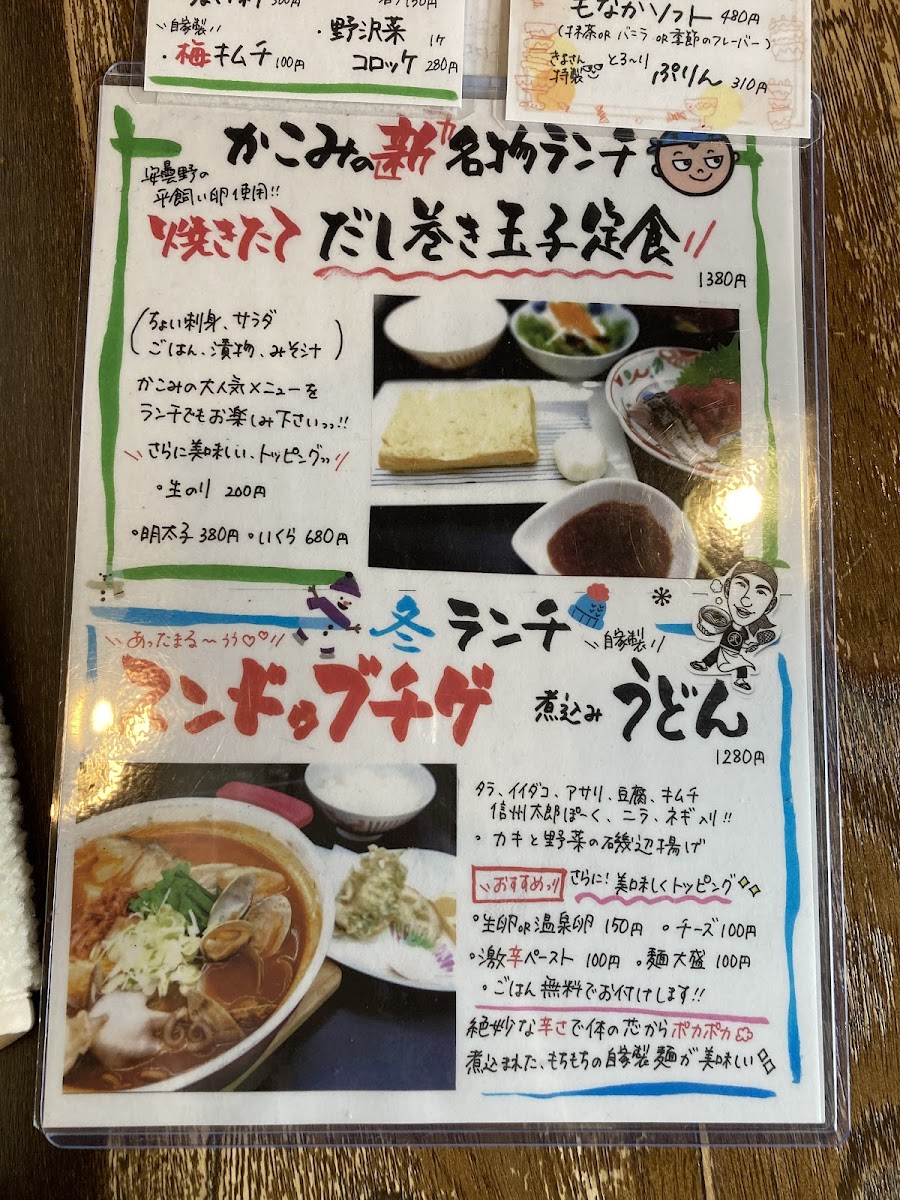 300円
150円
自家製
・梅キムチ 100円
・野沢菜コロッケ 1ケ 280円
もなかソフト 480円
(抹茶orバニラor季節のフレーバー)
きよさん特製 とろ〜り ぷりん 310円
かこみの新名物ランチ
安曇野の
平飼い卵使用!!
焼きたて だし巻き玉子定食
1380円
(ちょい刺身、サラダ
ごはん、漬物、みそ汁)
かこみの大人気メニューを
ランチでもお楽しみ下さいっっ!!
さらに美味しい、トッピングっっ
・生のり 200円
・明太子 380円 ・いくら 680円
冬ランチ
あったまる〜
自家製
スンドゥブチゲ 煮込みうどん
1280円
タラ、イイダコ、アサリ、豆腐、キムチ
信州太郎ぽーく、ニラ、ネギ入り!!
・カキと野菜の磯辺揚げ
おすすめっ!! さらに!美味しくトッピング
・生卵or温泉卵 150円 ・チーズ 100円
・激辛ペースト 100円 ・麺大盛 100円
・ごはん無料でお付けします!!
絶妙な辛さで体の芯からポカポカ
煮込まれた、もちもちの自家製麺が美味しい